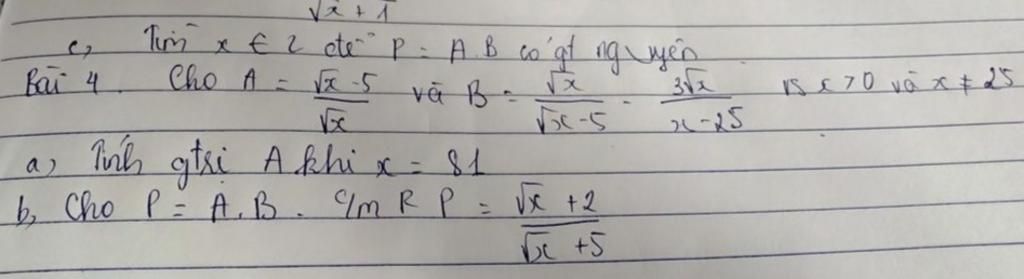 √x + 1
c, Tìm x ∈ Z để P = A.B có gt nguyên
Bài 4. Cho A = (√x - 5)/√x và B = √x/(√x - 5) - 3√x/(x - 25) x > 0 và x ≠ 25
a) Tính gtri A khi x = 81
b, Cho P = A.B. C/m R P = (√x + 2)/(√x + 5)